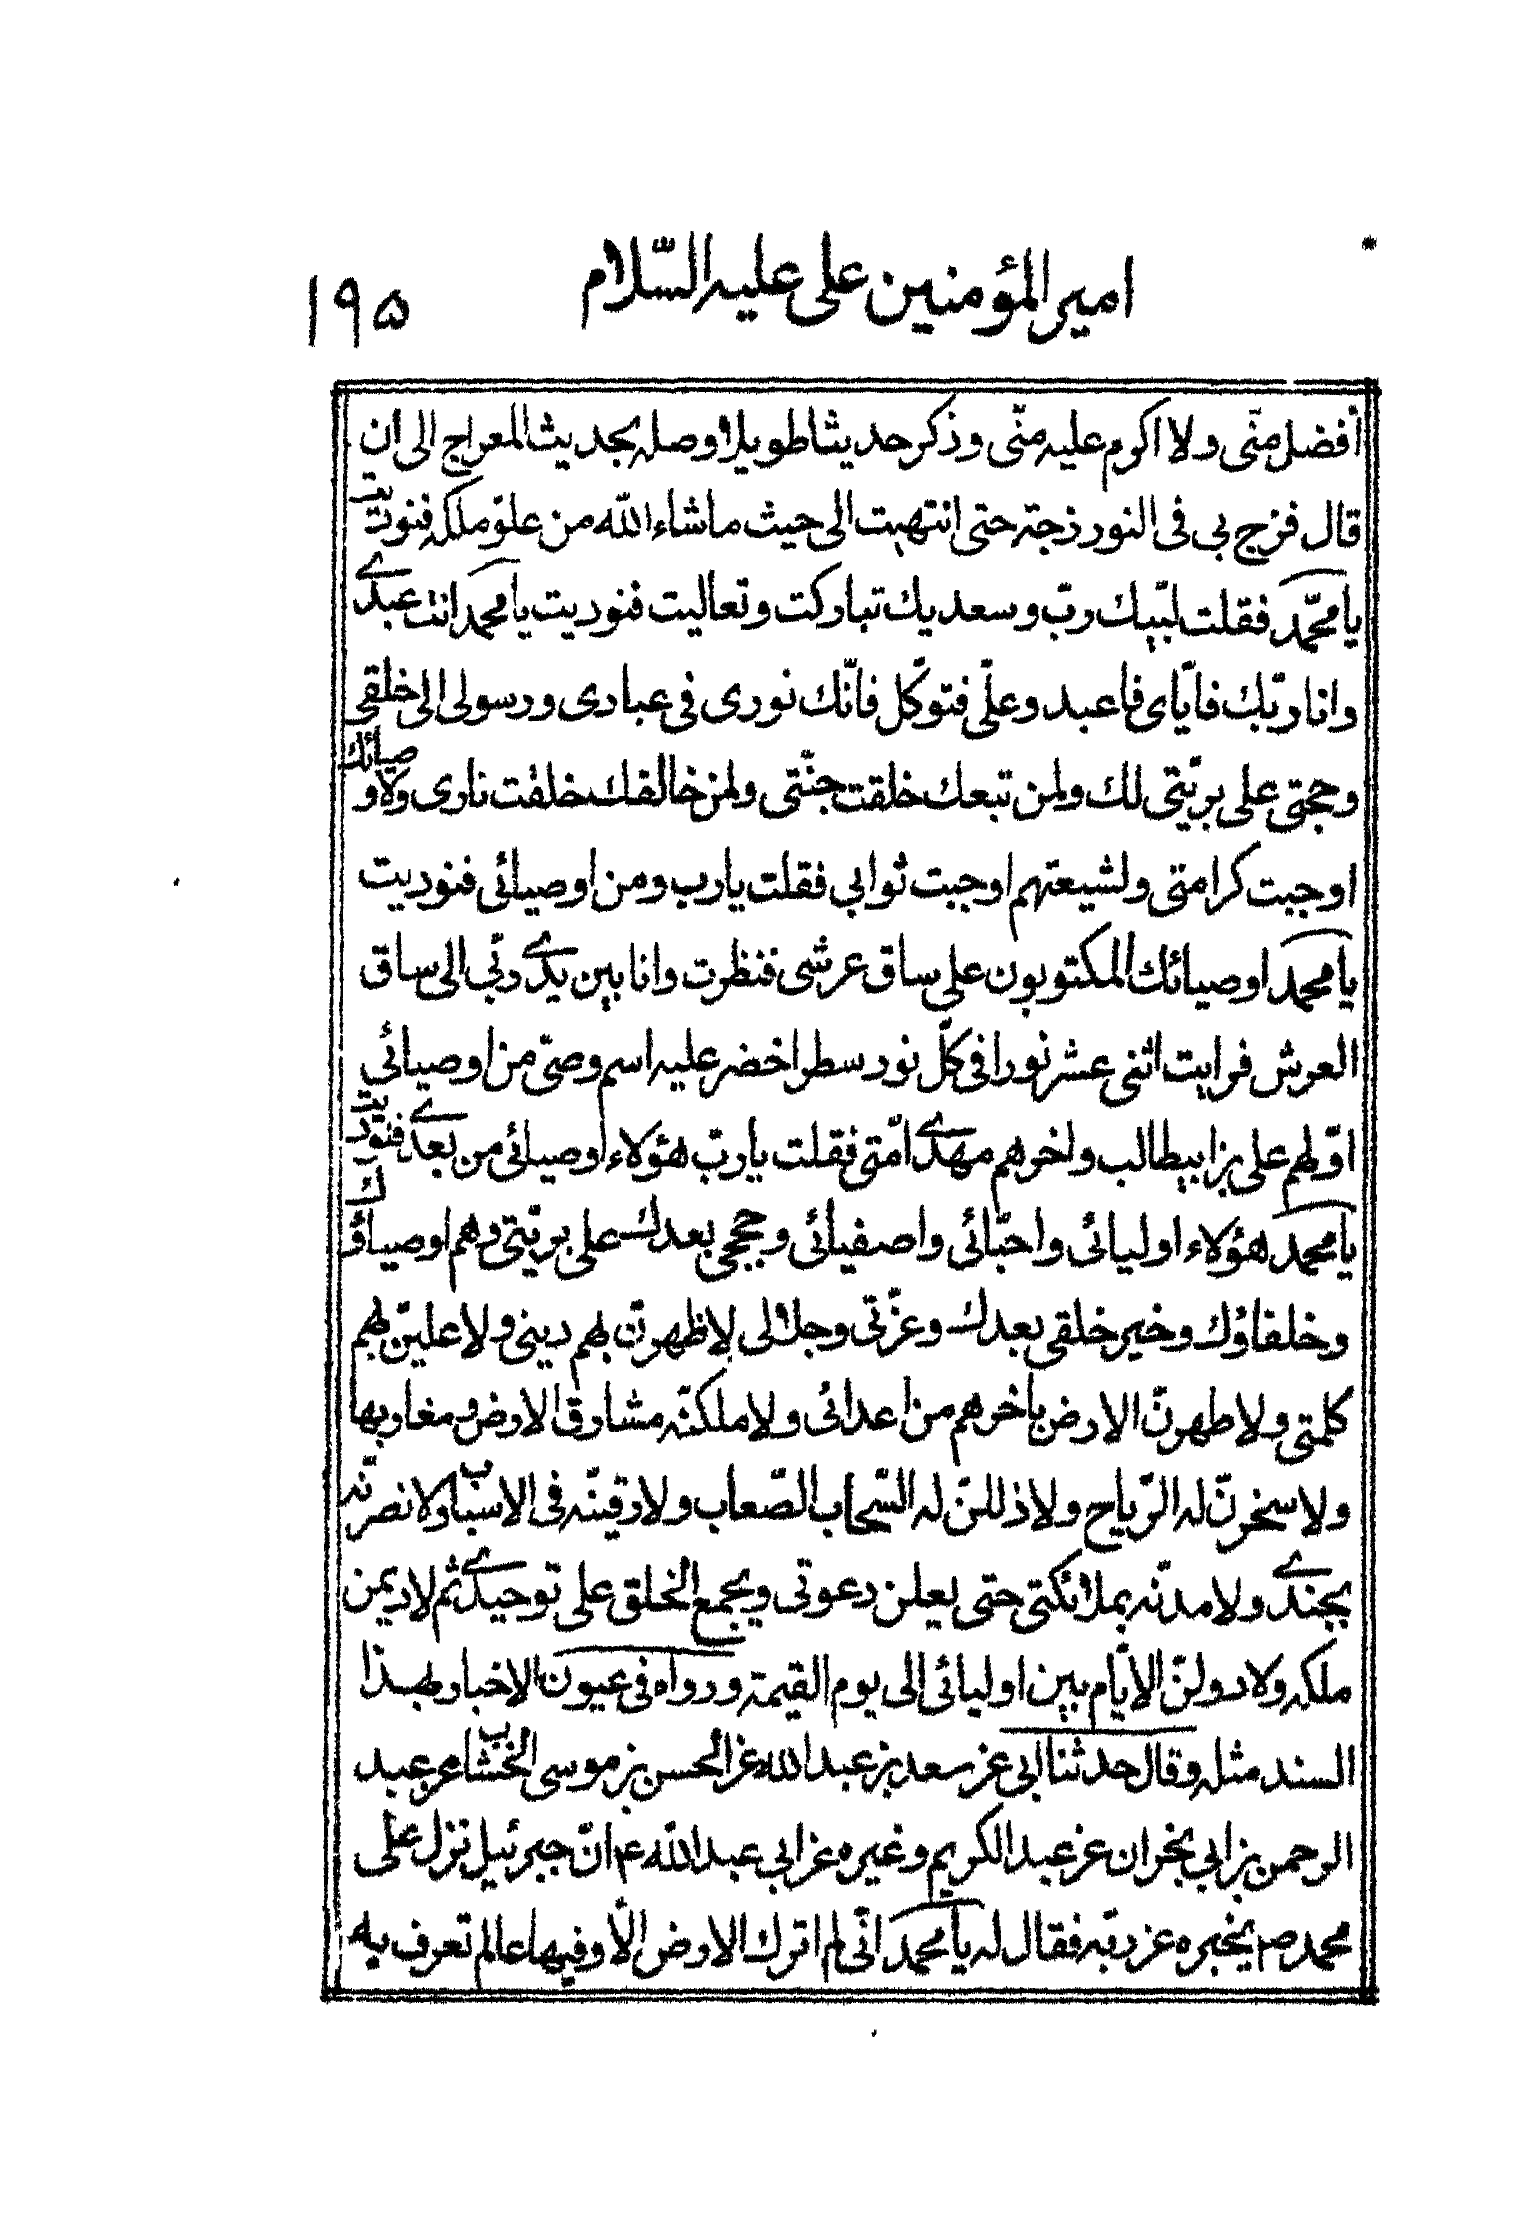 امير المؤمنين على عليه السّلام
١٩۵
أفضل منّى ولا اكرم عليه منّى وذكر حديثا طويلا وصله بحديث المعراج الى ان
قال فزج بى فى النور زجّة حتى انتهيت الى حيث ما شاء اللّه من علوّ ملكه فنوديت
يا محمّد فقلت لبّيك ربّ وسعديك تباركت وتعاليت فنوديت يا محمد انت عبدى
وانا ربّك فايّاى فاعبد وعلىّ فتوكّل فانّك نورى فى عبادى ورسولى الى خلقى
وحجتى على بريّتى لك ولمن تبعك خلقت جنّتى ولمن خالفك خلقت نارى ولاوصيائك
اوجبت كرامتى ولشيعتهم اوجبت ثوابي فقلت يارب ومن اوصيائى فنوديت
يا محمد اوصيائك المكتوبون على ساق عرشى فنظرت وانا بين يدى ربّي الى ساق
العرش فرايت اثنى عشر نورا فى كلّ نور سطر اخضر عليه اسم وصىّ من اوصيائي
اوّلهم على بن ابيطالب واخرهم مهدى امّتى فقلت يا ربّ هؤلاء اوصيائى من بعدى فنوديت
يا محمد هؤلاء اوليائى واحبّائى واصفيائى وحججى بعدك على بريّتى وهم اوصياؤك
وخلفاؤك وخير خلقى بعدك وعزّتى وجلالى لاظهرنّ بهم دينى ولاعلينّ بهم
كلمتى ولاطهرنّ الارض باخرهم من اعدائى ولاملكنّه مشارق الارض ومغاربها
ولاسخرنّ له الرّياح ولاذللنّ له السّحاب الصّعاب ولارقينّه فى الاسباب ولانصرنّه
بجندى ولامدنّه بملائكتى حتى يعلن دعوتى ويجمع الخلق على توحيدى ثم لاديمن
ملكه ولاداولنّ الايّام بين اوليائى الى يوم القيمة ورواه فى عيون الاخبار بهذا
السند مثله وقال حدثنا ابى عن سعد بن عبد اللّه عن الحسن بن موسى الخشاب عن عبد
الرحمن بن ابي نجران عن عبد الكريم وغيره عن ابي عبد اللّه ع انّ جبرئيل نزل على
محمد ص يخبره عن ربّه فقال له يا محمد انّى لم اترك الارض الّا وفيها عالم تعرف به